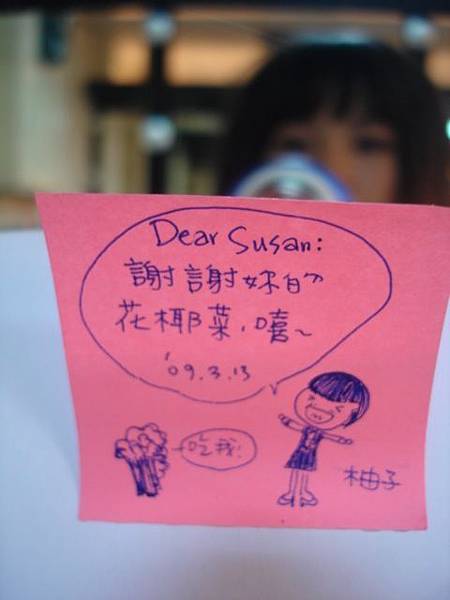 Dear Susan:
謝謝妳的
花椰菜,嘻~
'09.3.13
吃我!
柚子